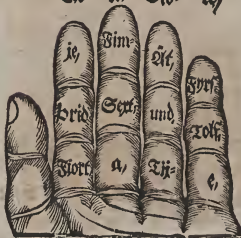 je, Fim- Åt, Fyrs-
Prid Sext, und, Tolf,
Fiort a, Tij- e,